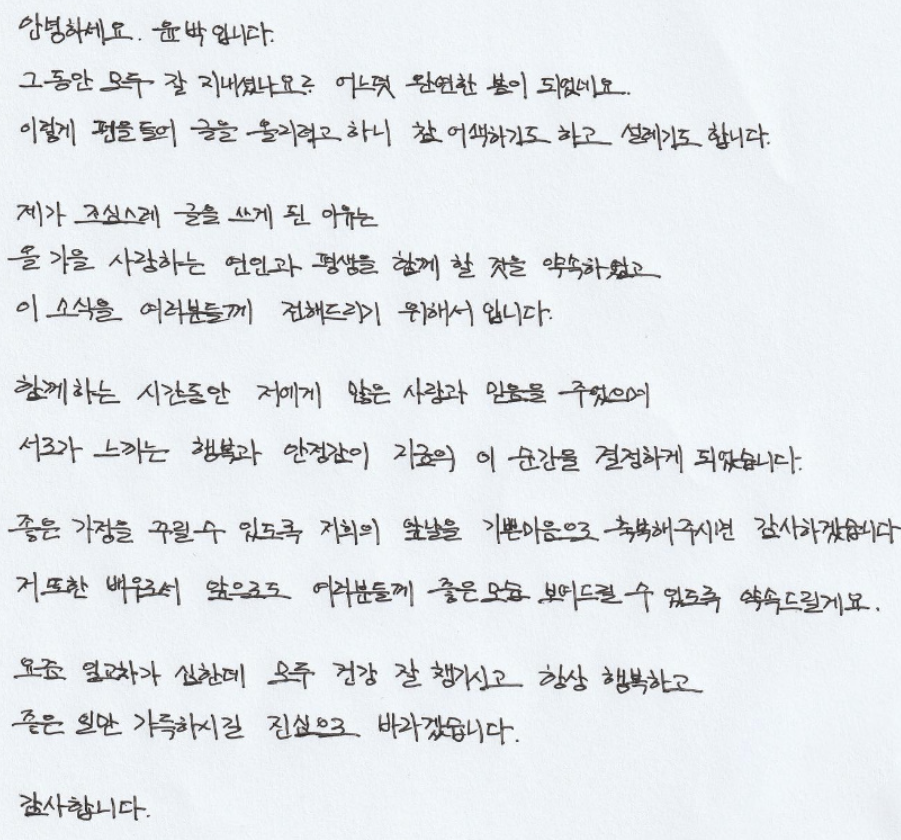 안녕하세요. 윤박입니다.
그동안 모두 잘 지내셨나요? 어느덧 완연한 봄이 되었네요.
이렇게 펜을 들어 글을 올리려고 하니 참 어색하기도 하고 설레기도 합니다.
제가 조심스레 글을 쓰게 된 이유는
올 가을 사랑하는 연인과 평생을 함께 할 것을 약속하였고
이 소식을 여러분들께 전해드리기 위해서입니다.
함께하는 시간동안 저에게 많은 사랑과 믿음을 주었으며
서로가 느끼는 행복과 안정감이 지금의 이 순간을 결정하게 되었습니다.
좋은 가정을 꾸릴 수 있도록 저희의 앞날을 기쁜마음으로 축복해주시면 감사하겠습니다
저 또한 배우로서 앞으로도 여러분들께 좋은 모습 보여드릴 수 있도록 약속드릴게요.
요즘 일교차가 심한데 모두 건강 잘 챙기시고 항상 행복하고
좋은 일만 가득하시길 진심으로 바라겠습니다.
감사합니다.